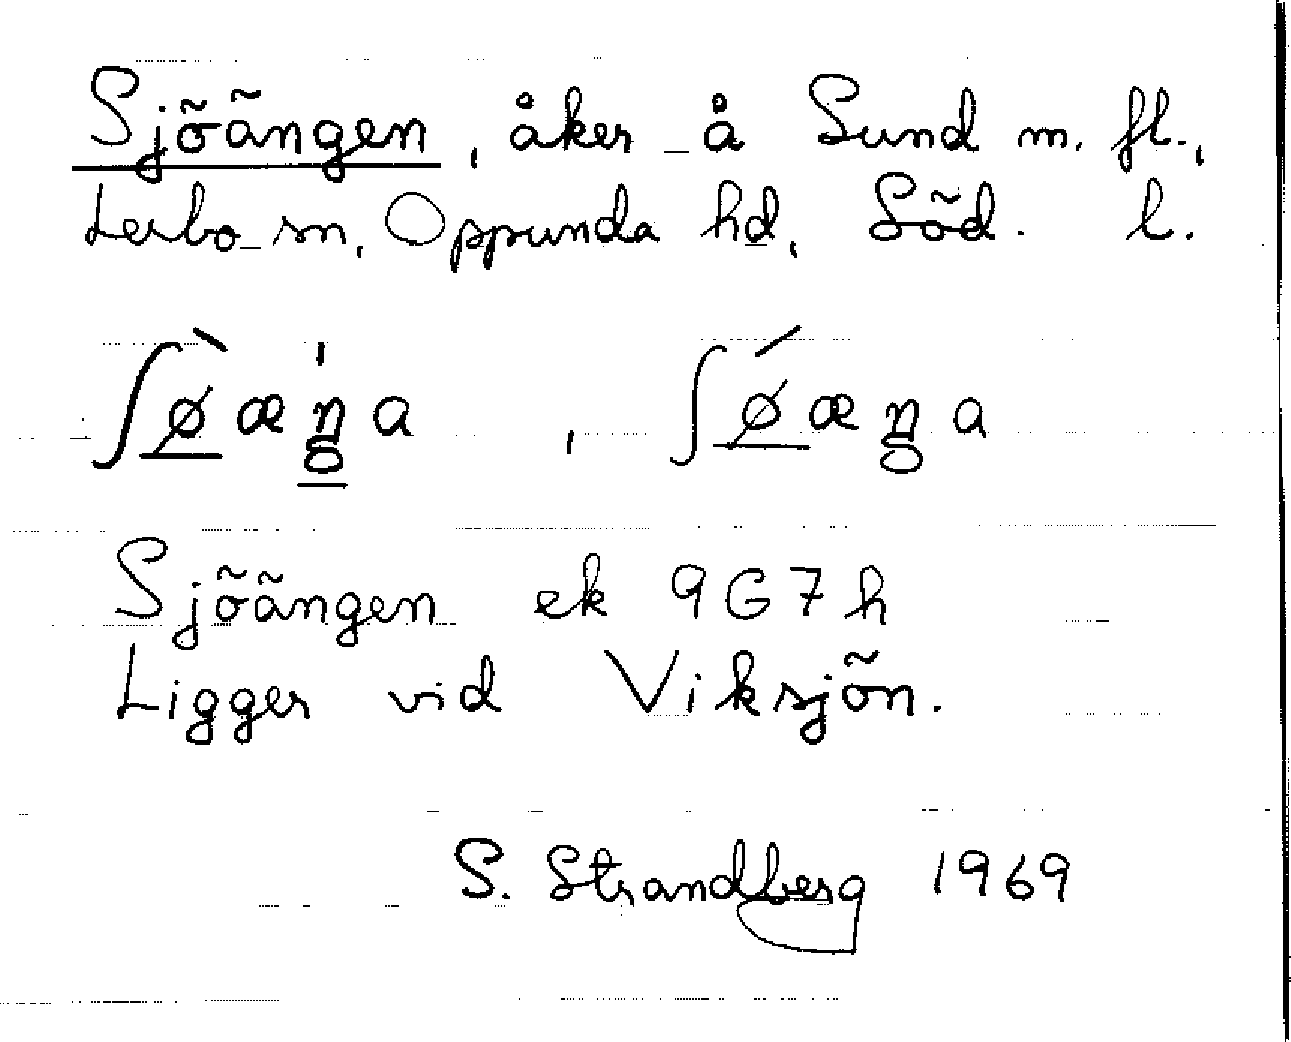 Sjöängen, åker å Sund m. fl.,
Lerbo sn, Oppunda hd, Söd. l.
ʃø̀æŋa, ʃǿæŋa
Sjöängen ek 9G7h
Ligger vid Viksjön.
S. Strandberg 1969